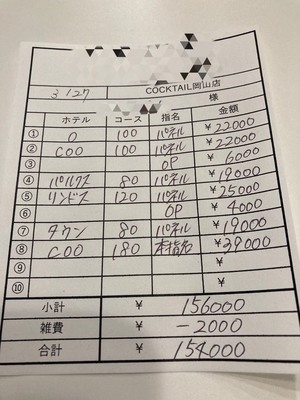 COCKTAIL岡山店
3/27 様
ホテル コース 指名 金額
① O 100 パネル ¥22000
② COO 100 パネル ¥22000
③ OP ¥6000
④ パルクス 80 パネル ¥19000
⑤ リンドス 120 パネル ¥25000
⑥ OP ¥4000
⑦ タウン 80 パネル ¥19000
⑧ COO 180 本指名 ¥39000
⑨ ¥
⑩ ¥
小計 ¥ 156000
雑費 ¥ -2000
合計 ¥ 154000